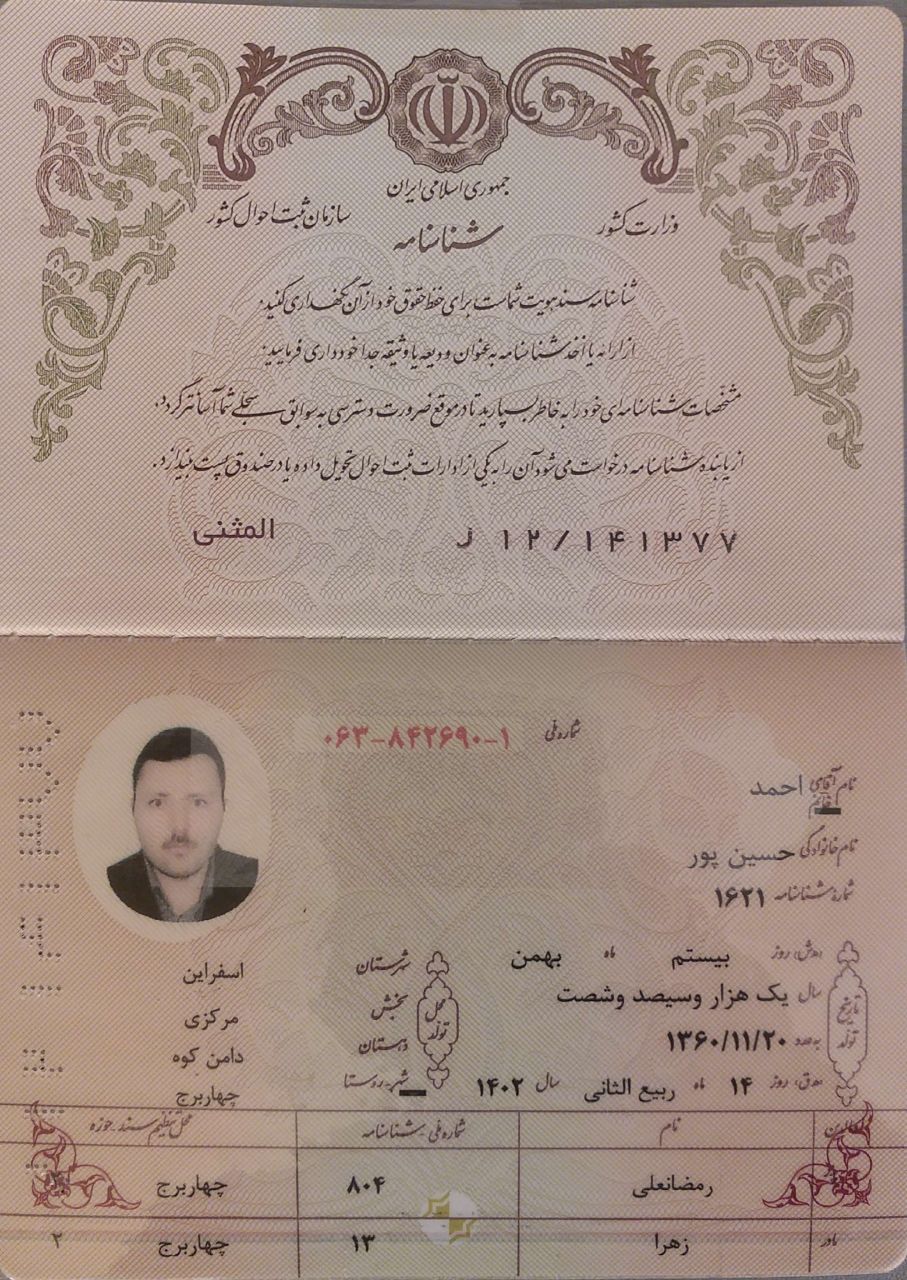 جمهوری اسلامی ایران
وزارت کشور
سازمان ثبت احوال کشور
شناسنامه
شناسنامه سند هویت شماست برای حفظ حقوق خود از آن نگهداری کنید.
از ارائه یا اخذ شناسنامه به عنوان ودیعه یا وثیقه جدا خودداری فرمایید.
مشخصات شناسنامه‌ای خود را به خاطر بسپارید تا در موقع ضرورت دسترسی به سوابق سجلی شما آسانتر گردد.
از یابنده شناسنامه درخواست می‌شود آن را به یکی از ادارات ثبت احوال تحویل داده یا در صندوق پست بیندازد.
ر ۱۲/۱۴۱۳۷۷
المثنی
شماره ملی ۰۶۳-۸۴۲۶۹۰-۱
نام آقای خانم احمد
نام خانوادگی حسین پور
شماره شناسنامه ۱۶۲۱
تاریخ تولد
هـ.ش: روز بیستم ماه بهمن
سال یک هزار وسیصد وشصت
به عدد ۱۳۶۰/۱۱/۲۰
هـ.ق: روز ۱۴ ماه ربیع الثانی سال ۱۴۰۲
محل تولد
شهرستان اسفراین
بخش مرکزی
دهستان دامن کوه
شهر-روستا چهاربرج
والدین نام شماره ملی-شناسنامه محل تنظیم سند-حوزه
رمضانعلی ۸۰۴ چهاربرج
مادر زهرا ۱۳ چهاربرج ۲